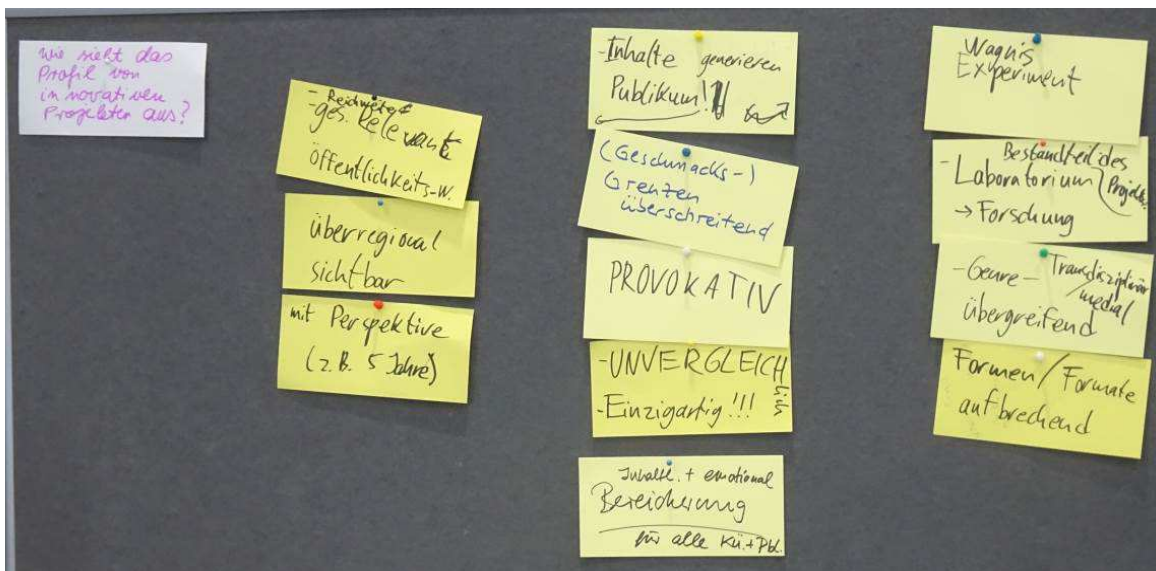 Wie sieht das
Profil von
innovativen
Projekten aus?
- Reichweite
ges. Relevanz
öffentlichkeits-w.
überregional
sichtbar
mit Perspektive
(z.B. 5 Jahre)
- Inhalte generieren
Publikum!!
(Geschmacks-)
Grenzen
überschreitend
PROVOKATIV
- UNVERGLEICHlich
- Einzigartig!!!
Inhaltl. + emotional
Bereicherung
für alle Kü.+Pbl.
Wagnis
Experiment
Bestandteil des
Projekts
- Laboratorium
→ Forschung
- Genre- Transdisziplinär
/medial
übergreifend
Formen/Formate
aufbrechend